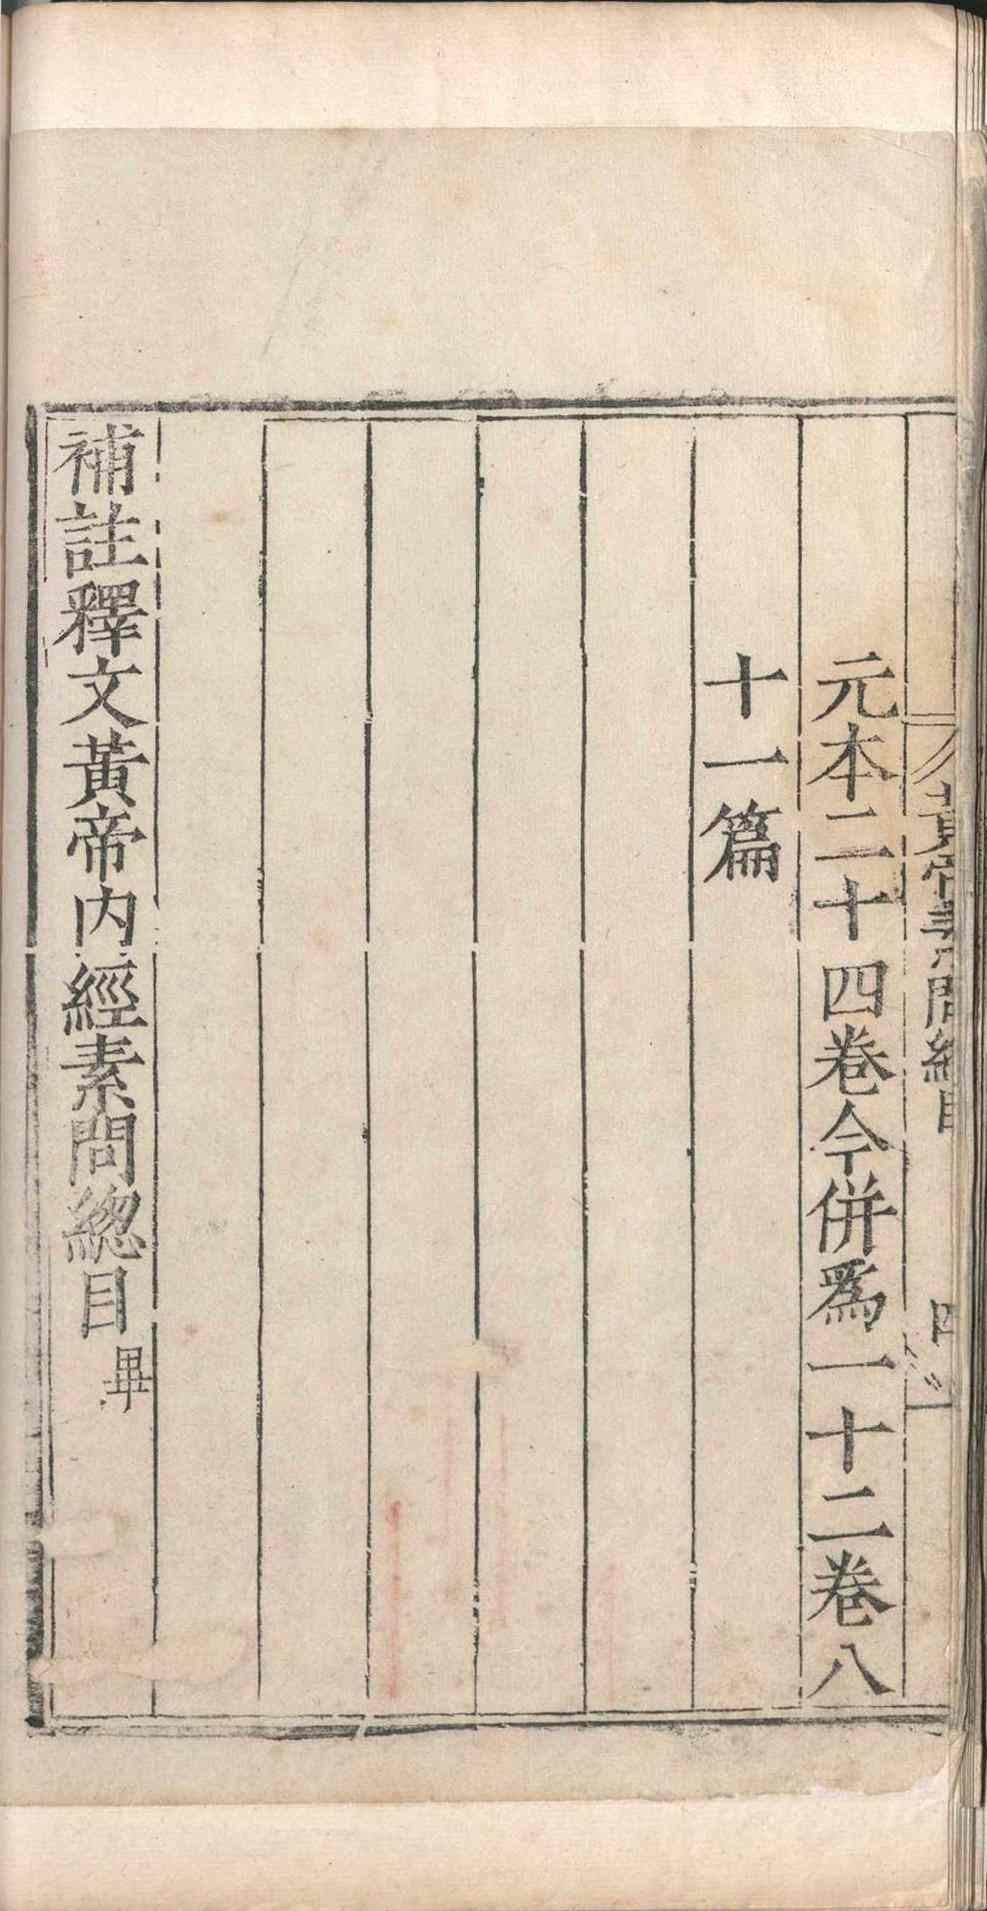 黃帝素問總目 四
元本二十四卷今併爲一十二卷八
十一篇
補註釋文黃帝內經素問總目畢